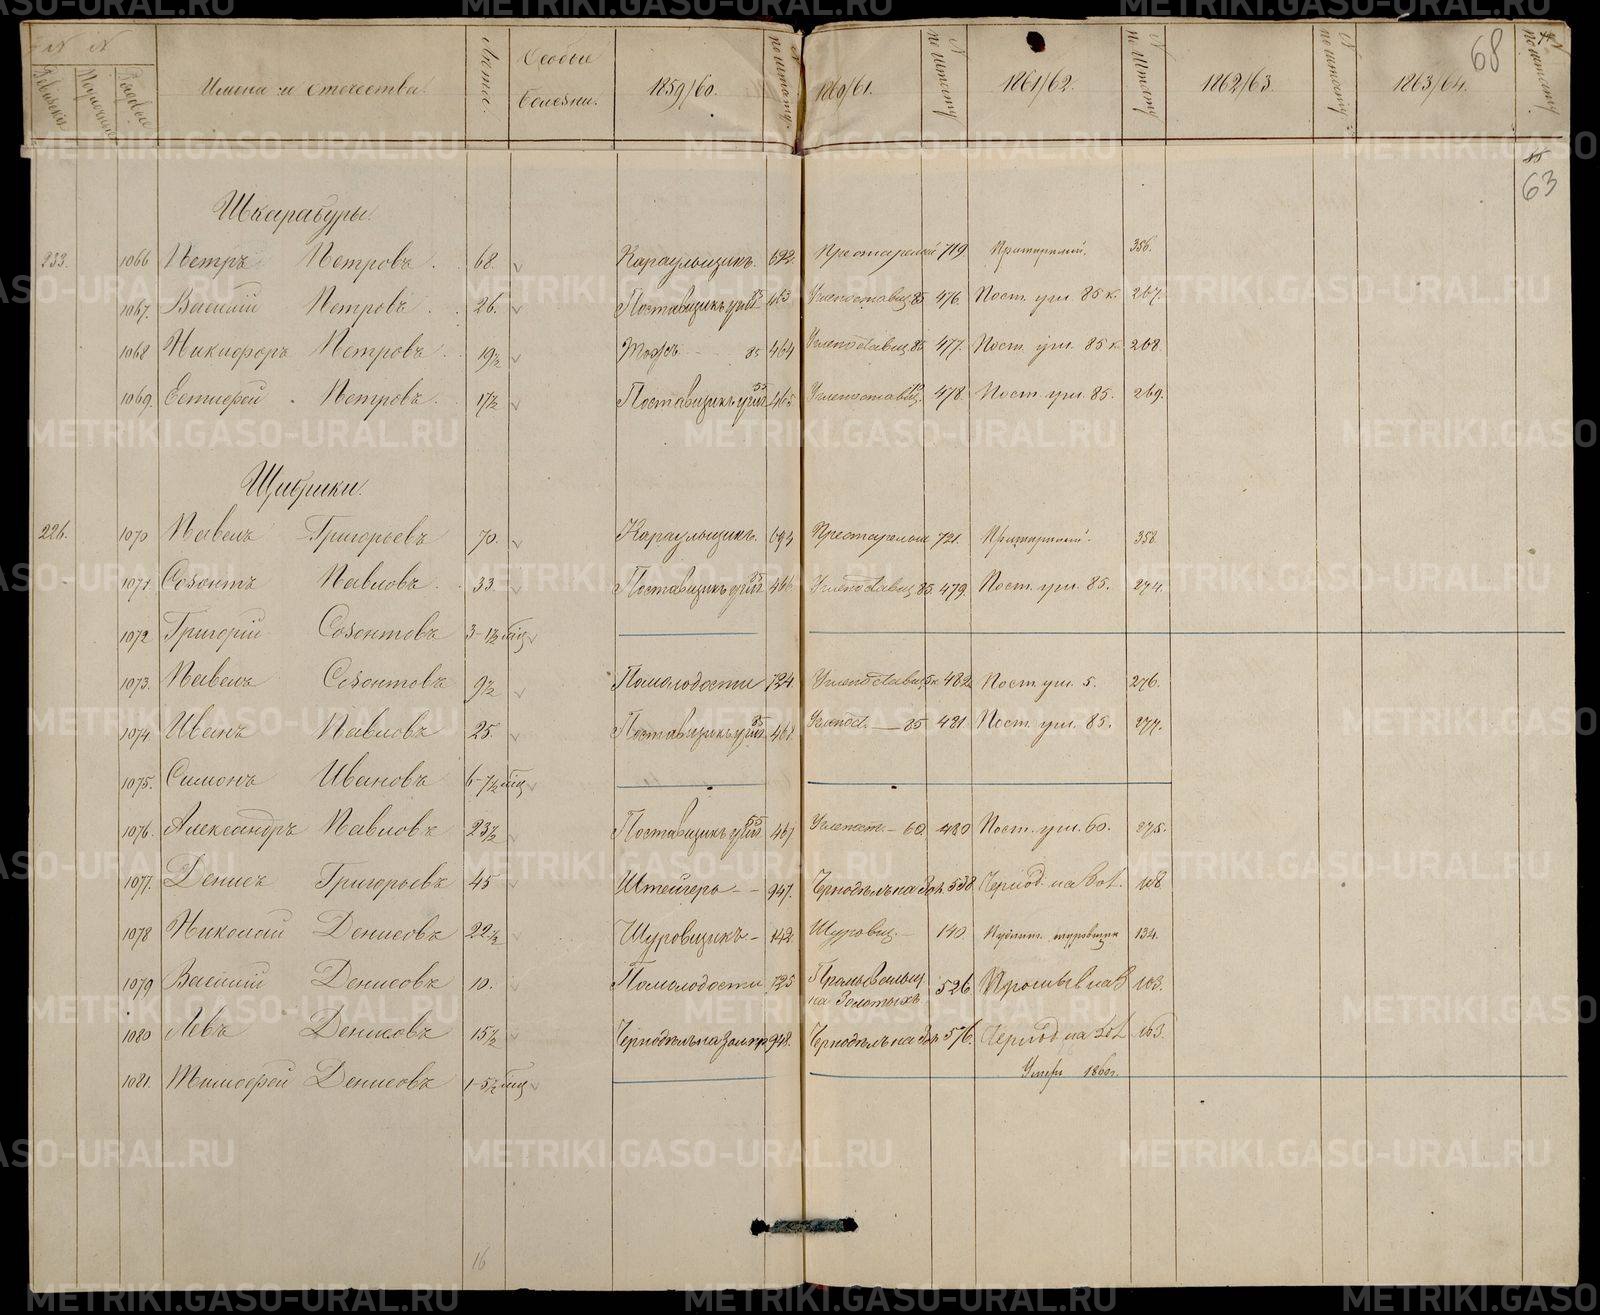 № № Имена и отечества. Лета. Особые болезни. 1859/60. № по штату. 1860/61. № по штату 1861/62. № по штату 1862/63. № по штату 1863/64. № по штату
Ревизск. Рядовые
68
85
63
Шкарабуры.
233. 1066 Петръ Петровъ. 68. Караульщикъ. 692. Престарелый 719 Пристарелый. 356.
1067. Василий Петровъ. 26. Поставщикъ угля 85 463 Углепоставщ 85 476. Пост. угл. 85 к. 267.
1068 Никифоръ Петровъ. 19½ Тожъ 85 464 Углепоставщ 85 477. Пост. угл. 85 к. 268.
1069. Естифей Петровъ. 17½ Поставщикъ угля 55 465. Углепоставщ. 478. Пост. угл. 85. 269.
Щибрики.
226. 1070 Павелъ Григорьевъ 70. Караульщикъ. 694 Престарелый 721. Пристарелый. 358.
1071 Созонтъ Павловъ. 33. Поставщикъ угля 85 466 Углепоставщ 85. 479. Пост. угл. 85. 274.
1072 Григорий Созонтовъ 3-1½ мѣц
1073. Павелъ Созонтовъ 9½ Помолодости 724. Углепоставщ 482 Пост. угл. 5. 276.
1074. Иванъ Павловъ 25. Поставщикъ угля 85 468. Углепост. — 85 481. Пост. угл. 85. 277.
1075. Симонъ Ивановъ 6-7½ мѣц
1076. Александръ Павловъ 23½ Поставщикъ угля 55 467 Углепост. — 60. 480 Пост. угл. 60. 275.
1077. Денисъ Григорьевъ 45 Штейгеръ — 947. Чернодѣлъ на Зол. 538 108
1078 Николай Денисовъ 22½ Шуровщикъ — 142 Шуровщ. — 140. шуровщик 134.
1079 Василий Денисовъ 10. Помолодости 725 Промывальщ на Золотыхъ 526 Промыв на 103.
1080 Левъ Денисовъ 15½ Чернодѣлъ на Зол. пр 948. Чернодѣлъ на Зол. 576.
1081. Тимофей Денисовъ 1-5½ мѣц Умеръ 1860 г.
16
METRIKI.GASO-URAL.RU